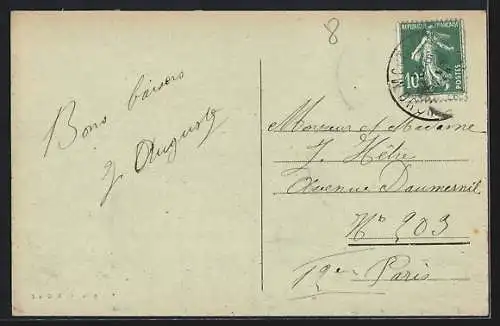 8
REPUBLIQUE FRANÇAISE
10
POSTES
Bons baisers
J Auguste
Monsieur et Madame
J. Hélie
Avenue Daumesnil
No 203
12em Paris